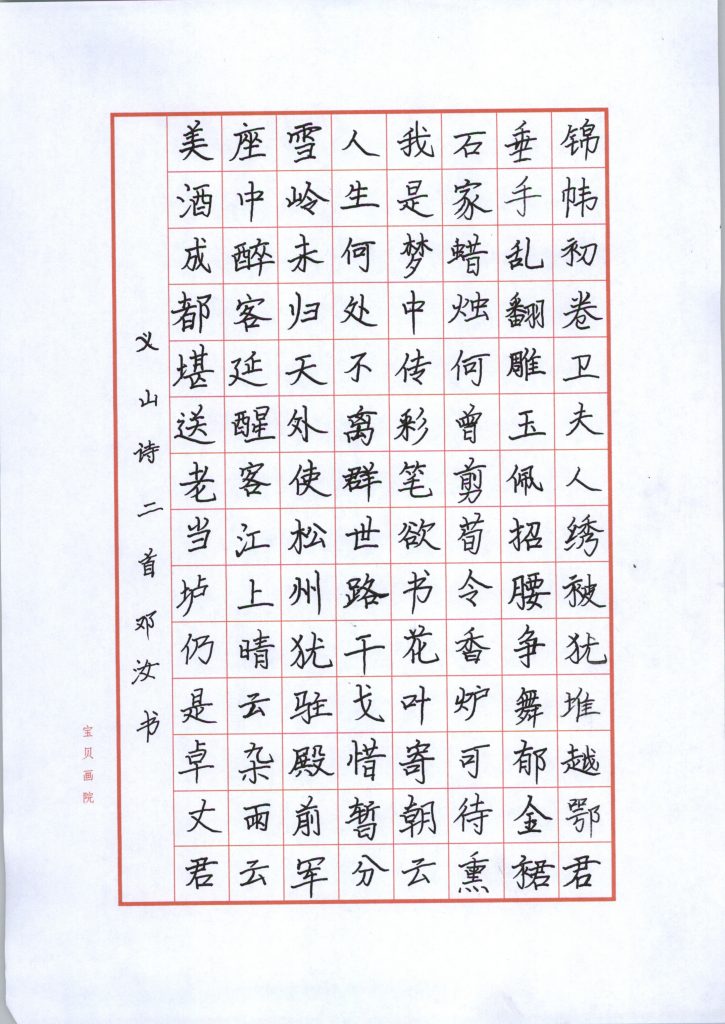 锦帏初卷卫夫人绣被犹堆越鄂君
垂手乱翻雕玉佩招腰争舞郁金裙
石家蜡烛何曾剪荀令香炉可待熏
我是梦中传彩笔欲书花叶寄朝云
人生何处不离群世路干戈惜暂分
雪岭未归天外使松州犹驻殿前军
座中醉客延醒客江上晴云杂雨云
美酒成都堪送老当垆仍是卓丈君
义山诗二首邓汝书
宝贝画院